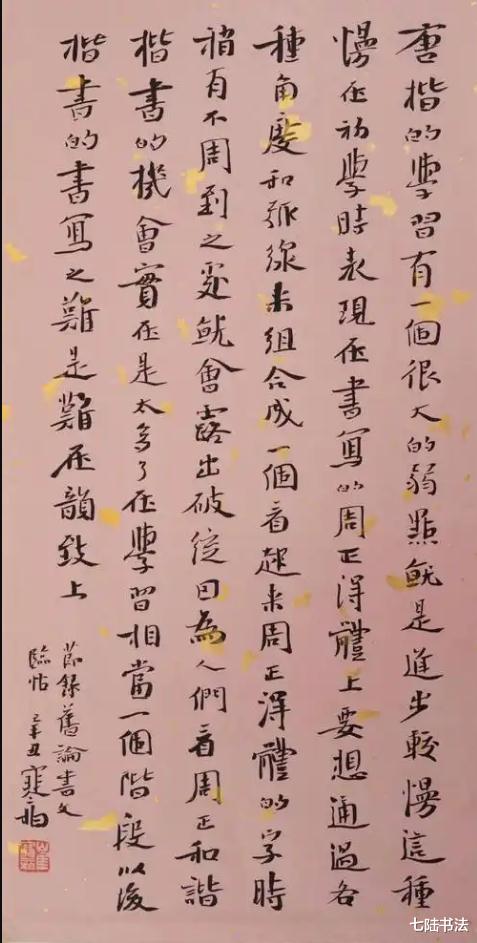 唐楷的學習有一個很大的弱點就是進步較慢這種
慢在初學時表現在書寫的周正得體上要想通過各
種角度和弧線來組合成一個看起來周正得體的字時
稍有不周到之處就會露出破綻因為人們看周正和諧
楷書的機會實在是太多了在學習相當一個階段以後
楷書的書寫之難是難在韻致上
節録舊論書文
臨帖 辛丑寒
七陆书法